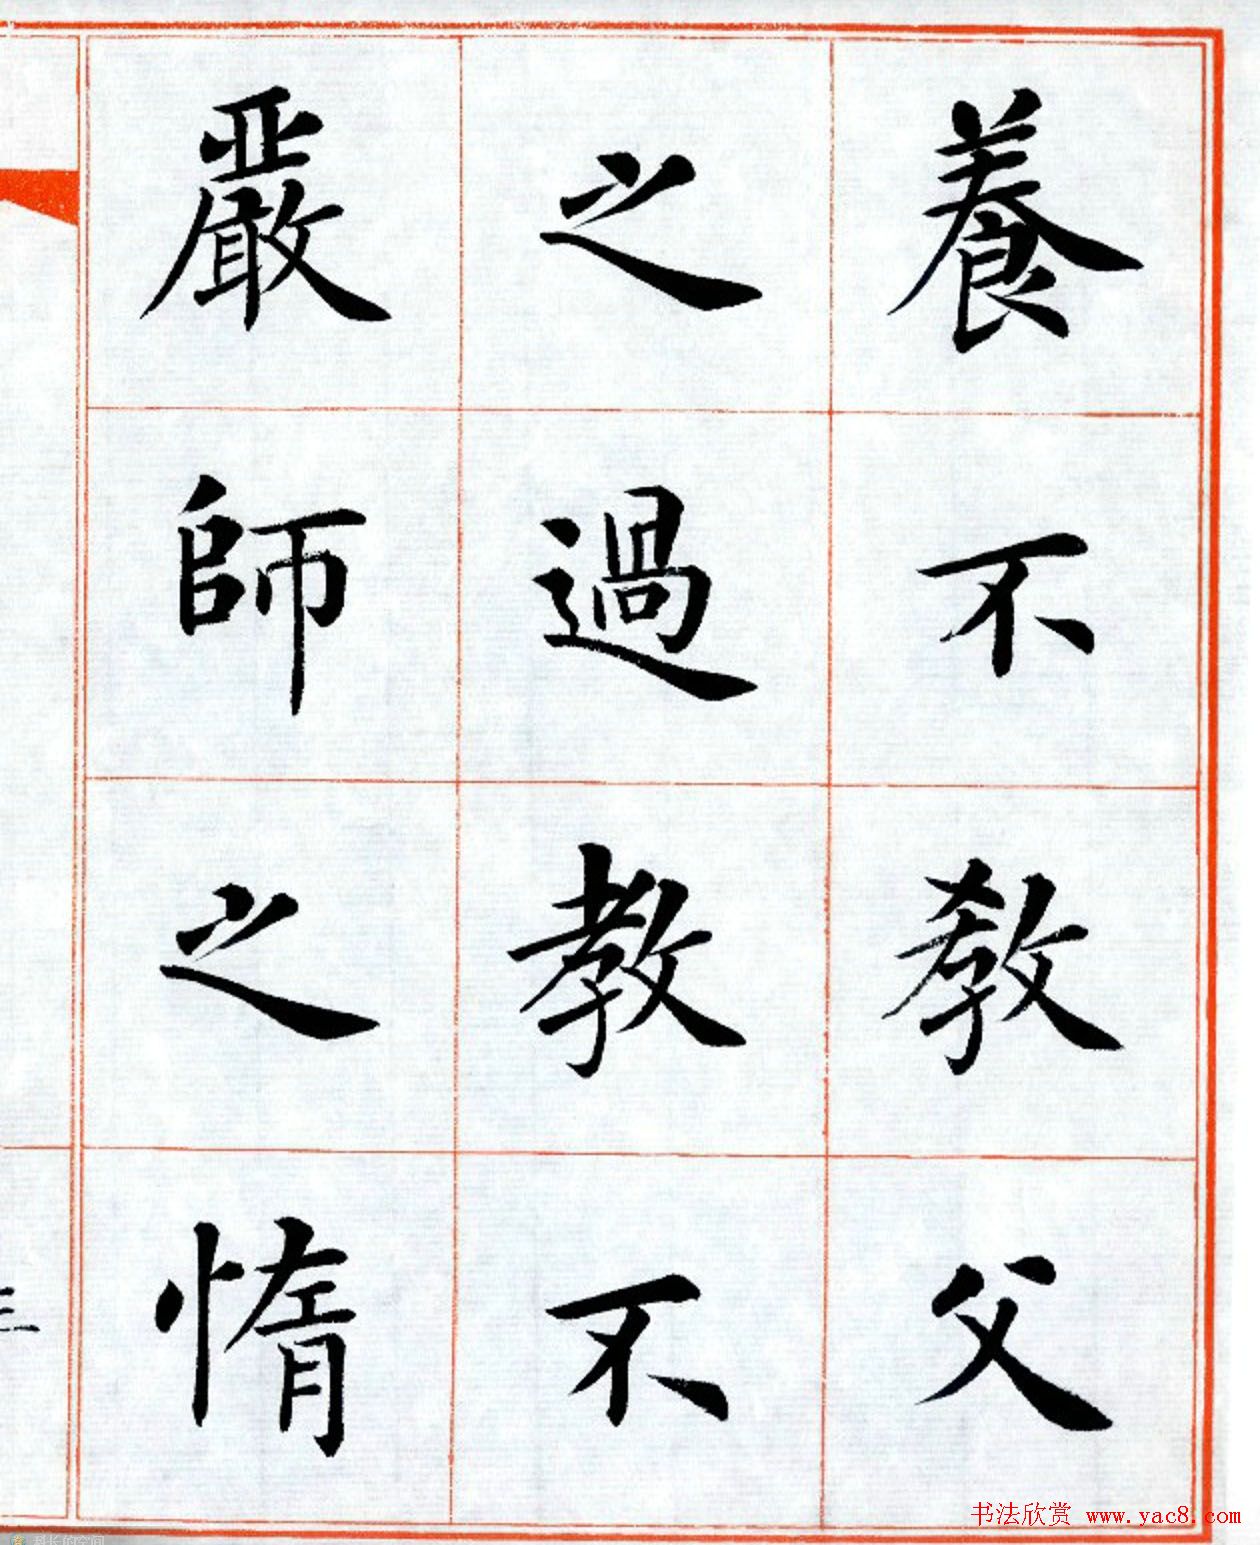 養不教父
之過教不
嚴師之惰
三
书法欣赏 www.yac8.com